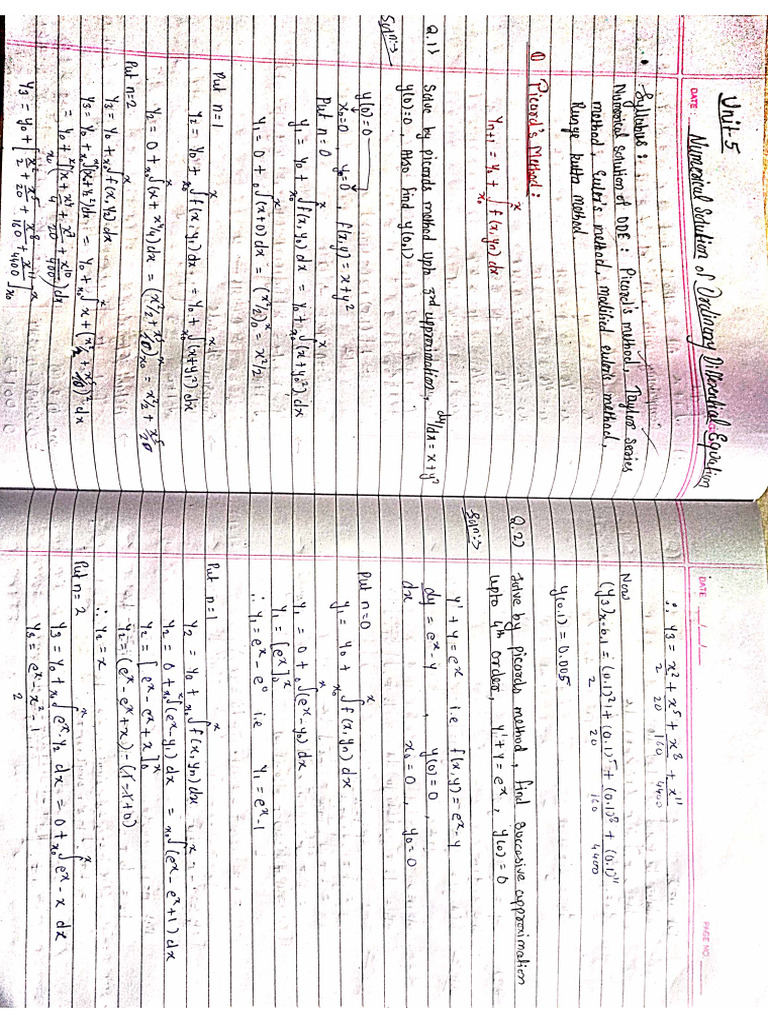 Unit-5
Numerical Solution of Ordinary Differential Equation
DATE:
Syllabus:
Numerical Solution of ODE: Picard's method, Taylor Series
method, Euler's method, modified euler's method,
Runge kutta method.
① Picard's Method:
y_{n+1} = y_0 + ∫_{x_0}^{x} f(x, y_n) dx
Q.1) Solve by picards method upto 3rd approximation, dy/dx = x + y²
y(0)=0, Also find y(0.1)
Solⁿ:→
y(0)=0
x_0=0, y_0=0, f(x,y) = x+y²
Put n=0
y_1 = y_0 + ∫_{x_0}^{x} f(x, y_0) dx = y_0 + ∫_{x_0}^{x} (x+y_0²) dx
y_1 = 0 + ∫_0^x (x+0) dx = (x²/2)_0^x = x²/2
Put n=1
y_2 = y_0 + ∫_{x_0}^{x} f(x, y_1) dx = y_0 + ∫_{x_0}^{x} (x+y_1²) dx
y_2 = 0 + ∫_{x_0}^{x} (x + x⁴/4) dx = (x²/2 + x⁵/20)_{x_0}^{x} = x²/2 + x⁵/20
Put n=2
y_3 = y_0 + ∫_{x_0}^{x} f(x, y_2) dx
y_3 = y_0 + ∫_{x_0}^{x} (x+y_2²) dx = y_0 + ∫_{x_0}^{x} x + (x²/2 + x⁵/20)² dx
= y_0 + ∫_{x_0}^{x} (x + x⁴/4 + x⁷/20 + x¹⁰/400) dx
y_3 = y_0 + [x²/2 + x⁵/20 + x⁸/160 + x¹¹/4400]_{x_0}^{x}
DATE / /
PAGE NO.
∴ y_3 = x²/2 + x⁵/20 + x⁸/160 + x¹¹/4400
Now
(y_3)x=0.1 = (0.1)²/2 + (0.1)⁵/20 + (0.1)⁸/160 + (0.1)¹¹/4400
y(0.1) = 0.005
Q.2) Solve by picards method, find successive approximation
upto 4th order, y' + y = e^x, y(0) = 0
Solⁿ:→
y' + y = e^x i.e f(x,y) = e^x - y
dy/dx = e^x - y, y(0) = 0,
x_0 = 0, y_0 = 0
Put n=0
y_1 = y_0 + ∫_{x_0}^{x} f(x, y_n) dx
y_1 = 0 + ∫_0^x (e^x - y_0) dx
y_1 = [e^x]_0^x
∴ y_1 = e^x - e^0 i.e y_1 = e^x - 1
Put n=1
y_2 = y_0 + ∫_{x_0}^{x} f(x, y_n) dx
y_2 = 0 + ∫_{x_0}^{x} (e^x - y_1) dx = ∫_{x_0}^{x} (e^x - e^x + 1) dx
y_2 = [e^x - e^x + x]_0^x
y_2 = (e^x - e^x + x) - (1 - 1 + 0)
∴ y_2 = x
Put n=2
y_3 = y_0 + ∫_{x_0}^{x} e^x y_2 dx = 0 + ∫_{x_0}^{x} e^x - x dx
y_3 = e^x - x²/2 - 1